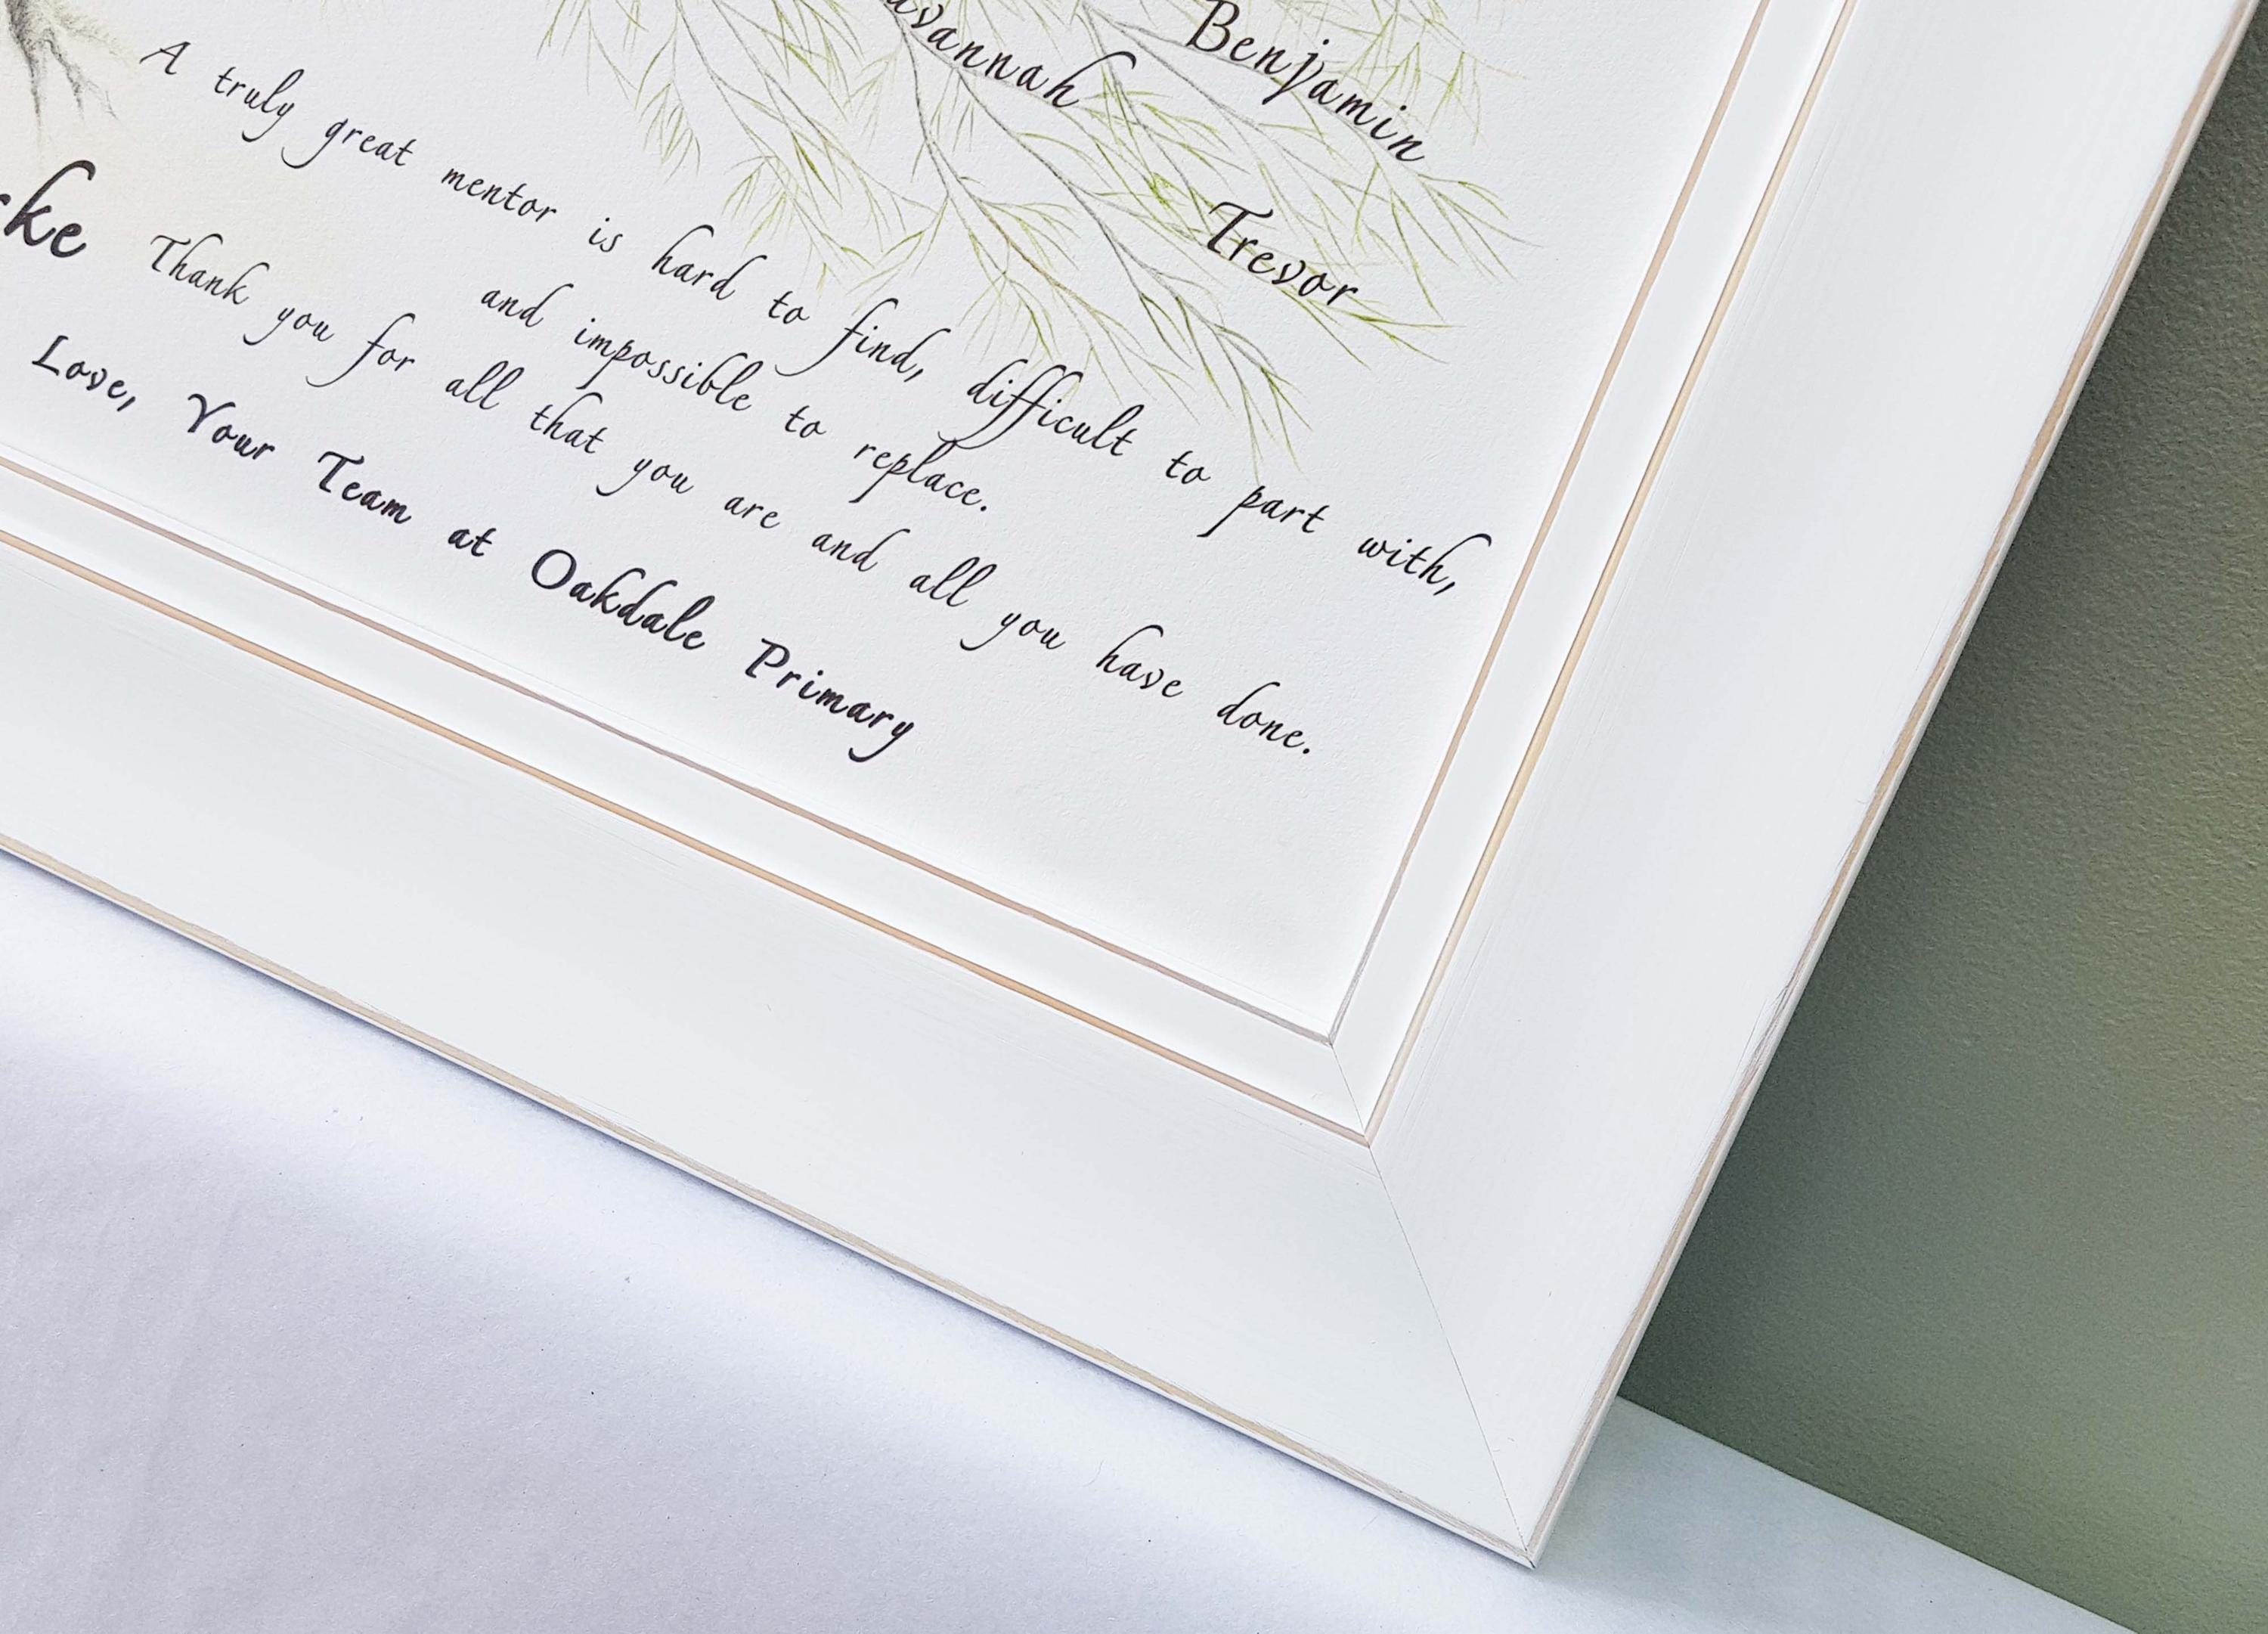 Benjamin
Trevor
A truly great mentor is hard to find, difficult to part with,
and impossible to replace.
Thank you for all that you are and all you have done.
Love, Your Team at Oakdale Primary